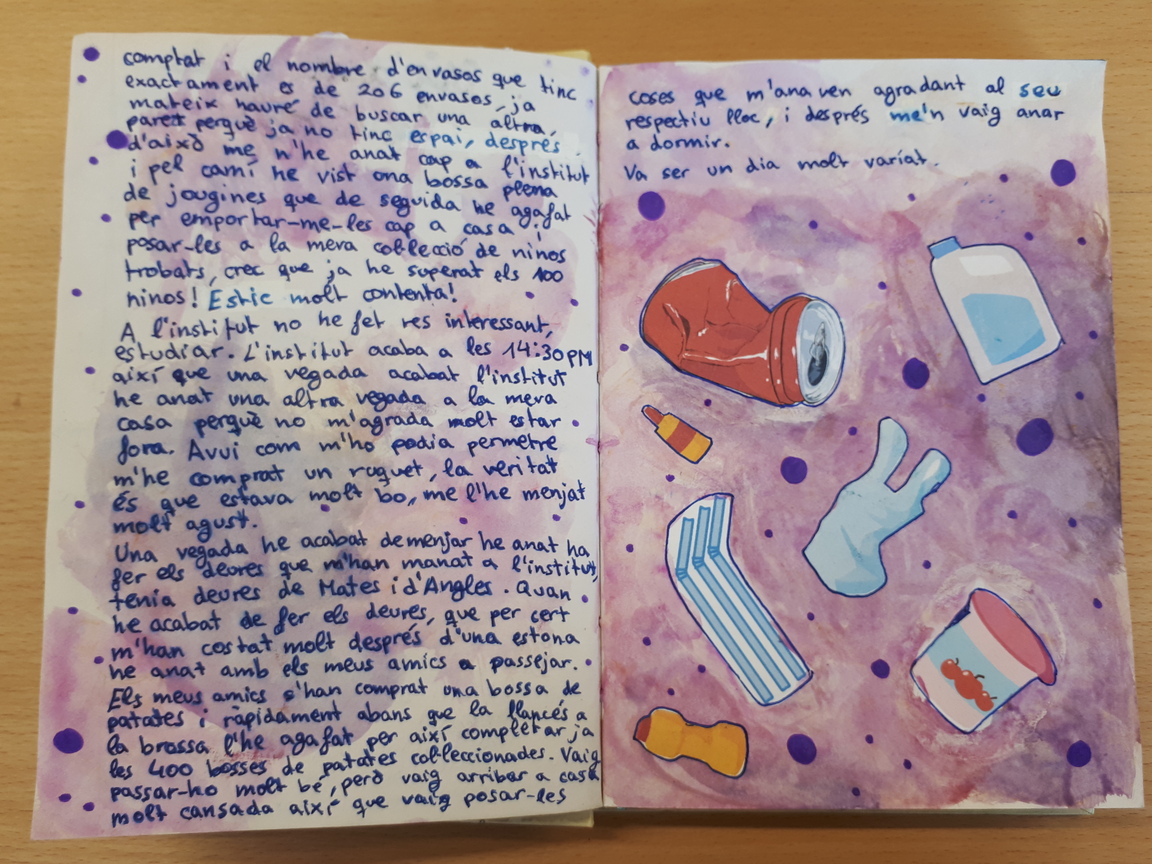 comptat i el nombre d'envasos que tinc
exactament es de 206 envasos, ja
mateix hauré de buscar una altra,
paret perquè ja no tinc espai, després
d'això me n'he anat cap a l'institut
i pel camí he vist ona bossa plena
de jougines que de seguida he agafat
per emportar-me-les cap a casa i
posar-les a la meva col·lecció de ninos
trobats, crec que ja he superat els 100
ninos! Estic molt contenta!
A l'institut no he fet res interessant,
estudiar. L'institut acaba a les 14:30PM
així que una vegada acabat l'institut
he anat una altra vegada a la meva
casa perquè no m'agrada molt estar
fora. Avui com m'ho podia permetre
m'he comprat un ruguet, la veritat
és que estava molt bo, me l'he menjat
molt agust.
Una vegada he acabat demenjar he anat ha
fer els deures que m'han manat a l'institut,
tenia deures de Mates i d'Angles. Quan
he acabat de fer els deures, que per cert
m'han costat molt després d'una estona
he anat amb els meus amics a passejar.
Els meus amics s'han comprat una bossa de
patates i ràpidament abans que la llancés a
la brossa l'he agafat per així completar ja
les 400 bosses de patates col·leccionades. Vaig
passar-ho molt bé, però vaig arribar a casa
molt cansada així que vaig posar-les
coses que m'anaven agradant al seu
respectiu lloc, i després me'n vaig anar
a dormir.
Va ser un dia molt variat.